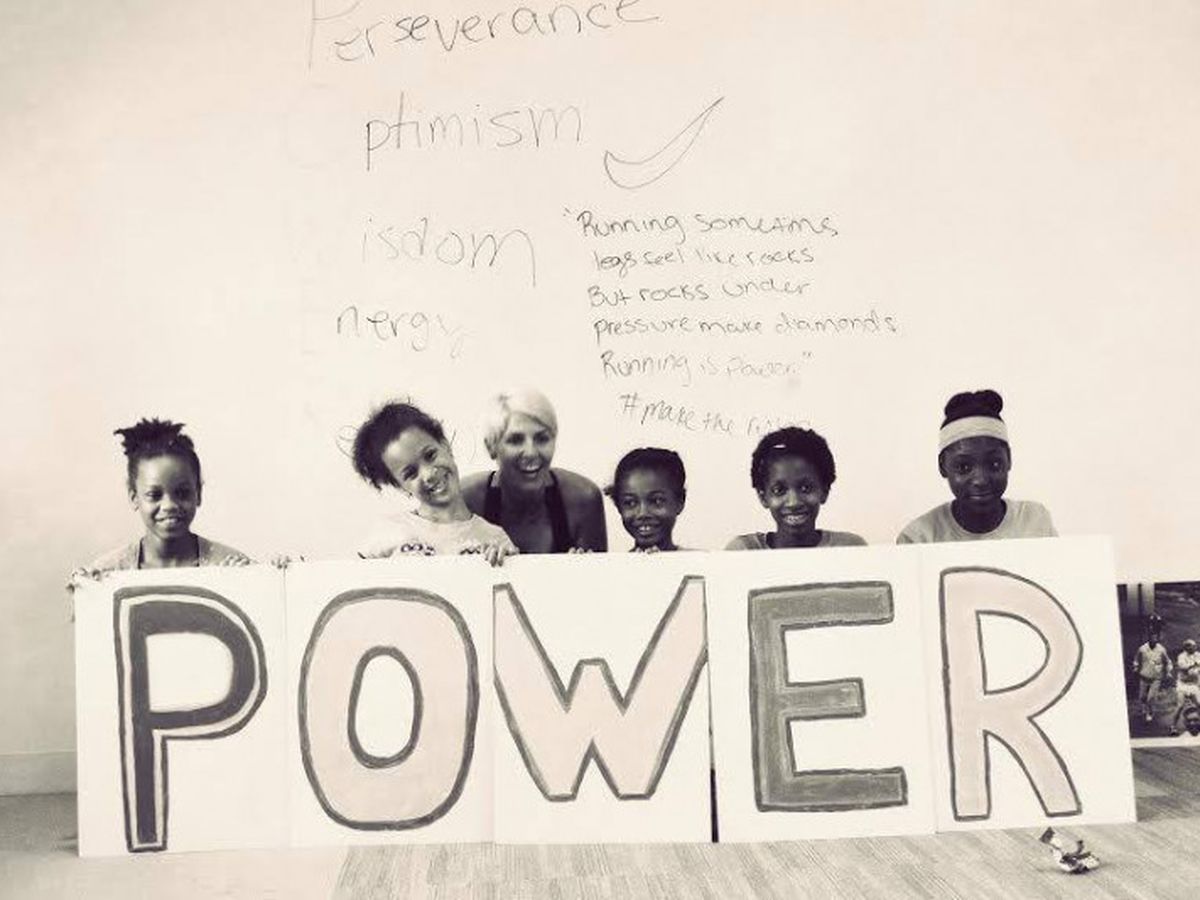 Perseverance
ptimism
isdom
nergy
"Running sometims
legs feel like rocks
But rocks under
pressure make diamonds
Running is Power."
#make the
POWER